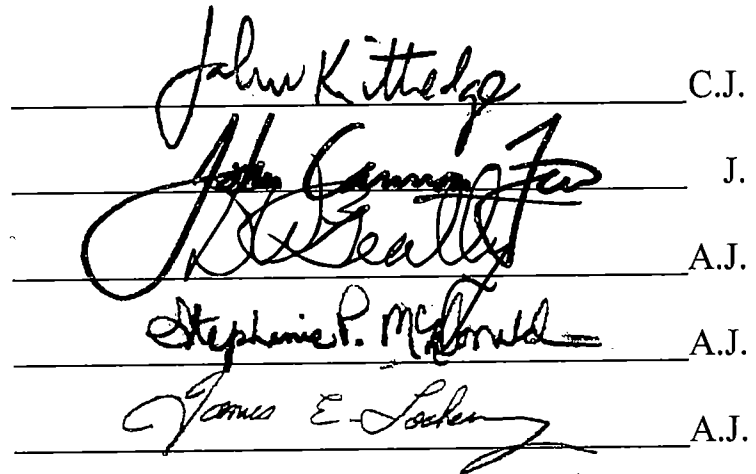 John Kittredge C.J.
John Cannon Few J.
A.J.
Stephanie P. McDonald A.J.
James E. Lockemy A.J.